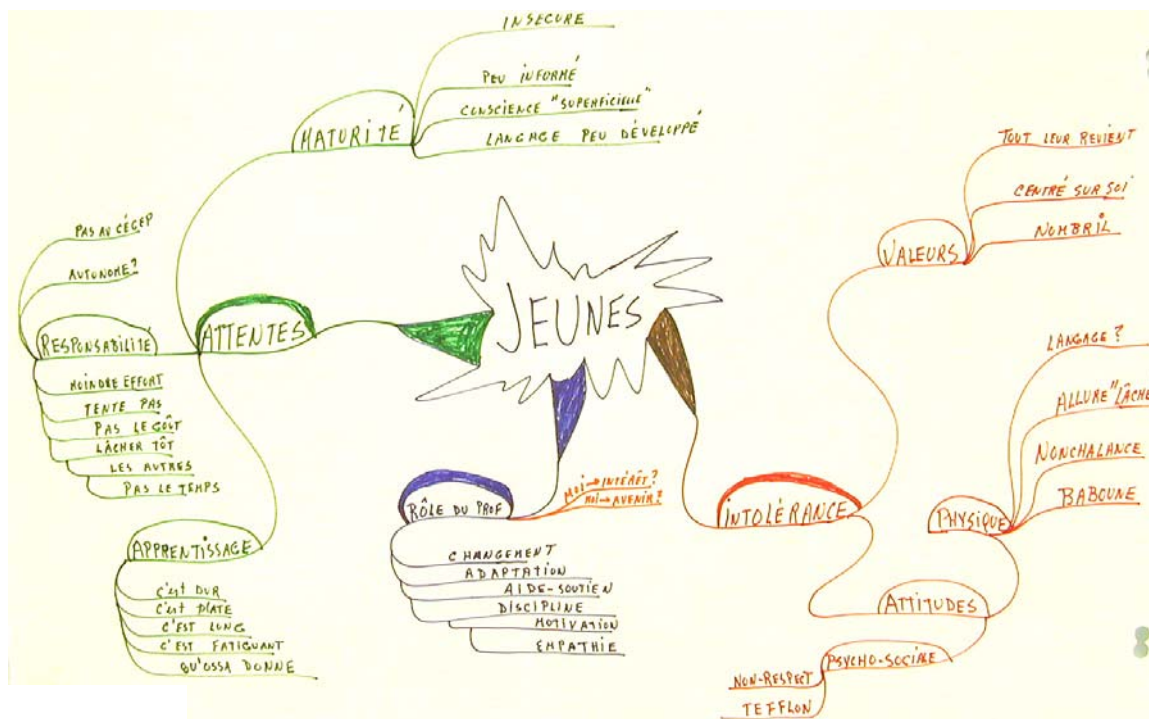 JEUNES
ATTENTES
MATURITÉ
INSÉCURE
PEU INFORMÉ
CONSCIENCE "SUPERFICIELLE"
LANGAGE PEU DÉVELOPPÉ
RESPONSABILITÉ
PAS AU CÉGEP
AUTONOME?
MOINDRE EFFORT
TENTE PAS
PAS LE GOÛT
LÂCHER TÔT
LES AUTRES
PAS LE TEMPS
APPRENTISSAGE
C'est DUR
C'est PLATE
C'EST LONG
C'EST FATIGUANT
QU'OSSA DONNE
RÔLE DU PROF
MOI→INTÉRÊT?
MOI→AVENIR?
CHANGEMENT
ADAPTATION
AIDE-SOUTIEN
DISCIPLINE
MOTIVATION
EMPATHIE
INTOLÉRANCE
VALEURS
TOUT LEUR REVIENT
CENTRÉ SUR SOI
NOMBRIL
ATTITUDES
PHYSIQUE
LANGAGE?
ALLURE "LÂCHE
NONCHALANCE
BABOUNE
PSYCHO-SOCIALE
NON-RESPECT
TEFFLON